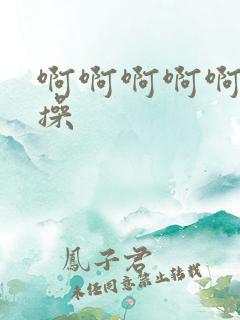 啊啊啊啊啊
操
鳳子君
未任同意禁止转载